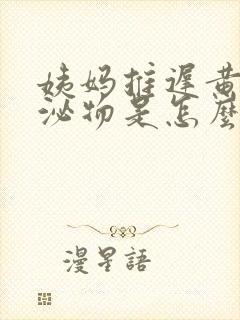 姨妈推遲黄
泌物是怎麼
漫星語